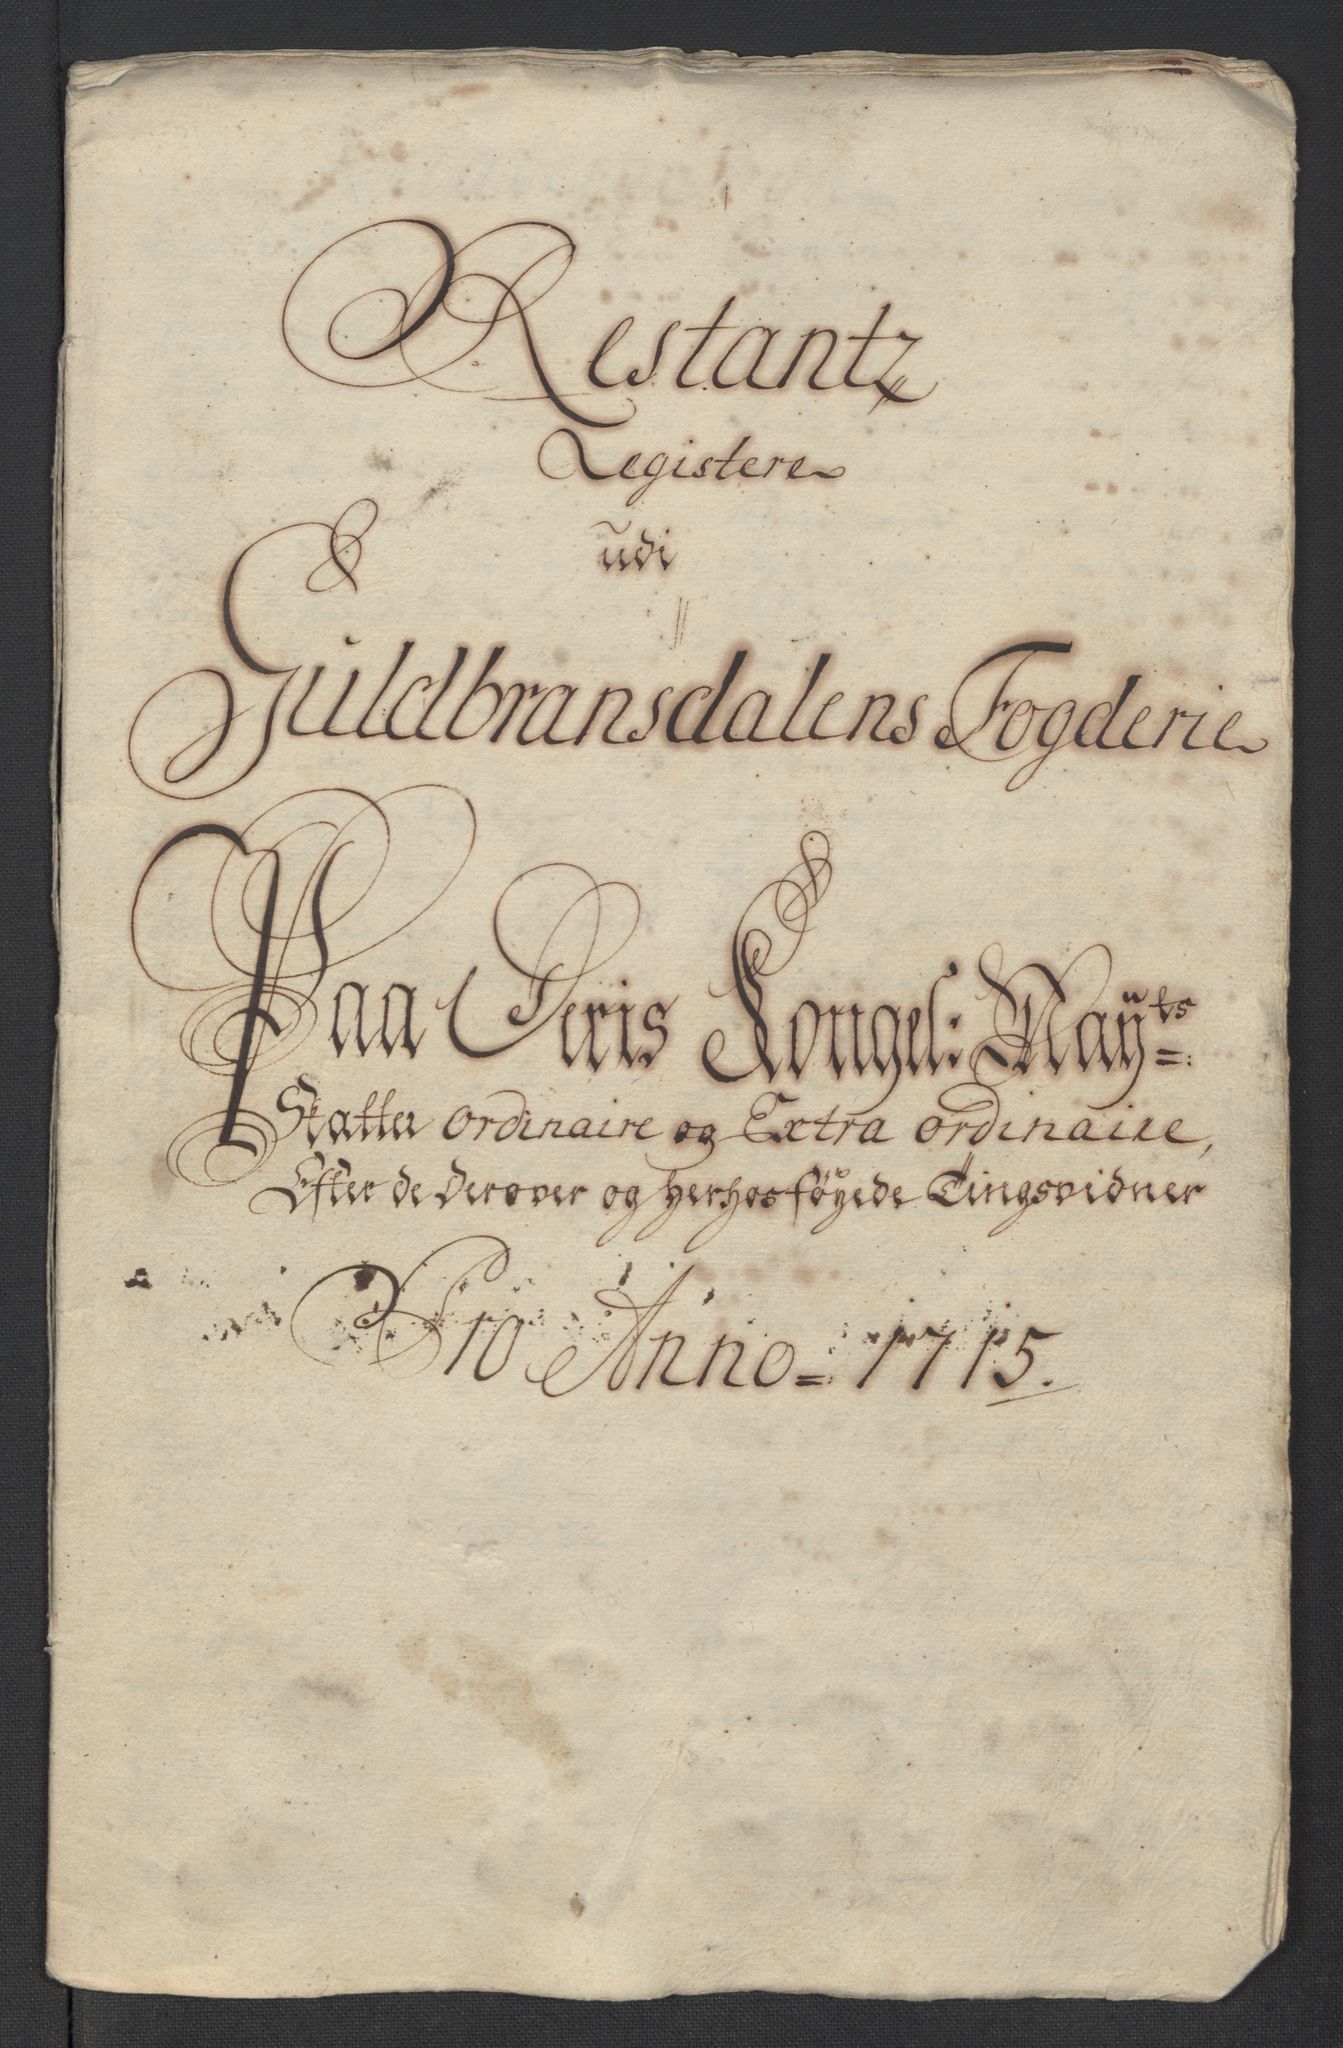 Restantz
Registere
udi
Guldbransdalens Fogderie
Paa Deris Kongel: May:ts
Skatter ordinaire og Extra ordinaire,
Efter de derover og herhos föyede Tingsvidner
Pro Anno = 1715.